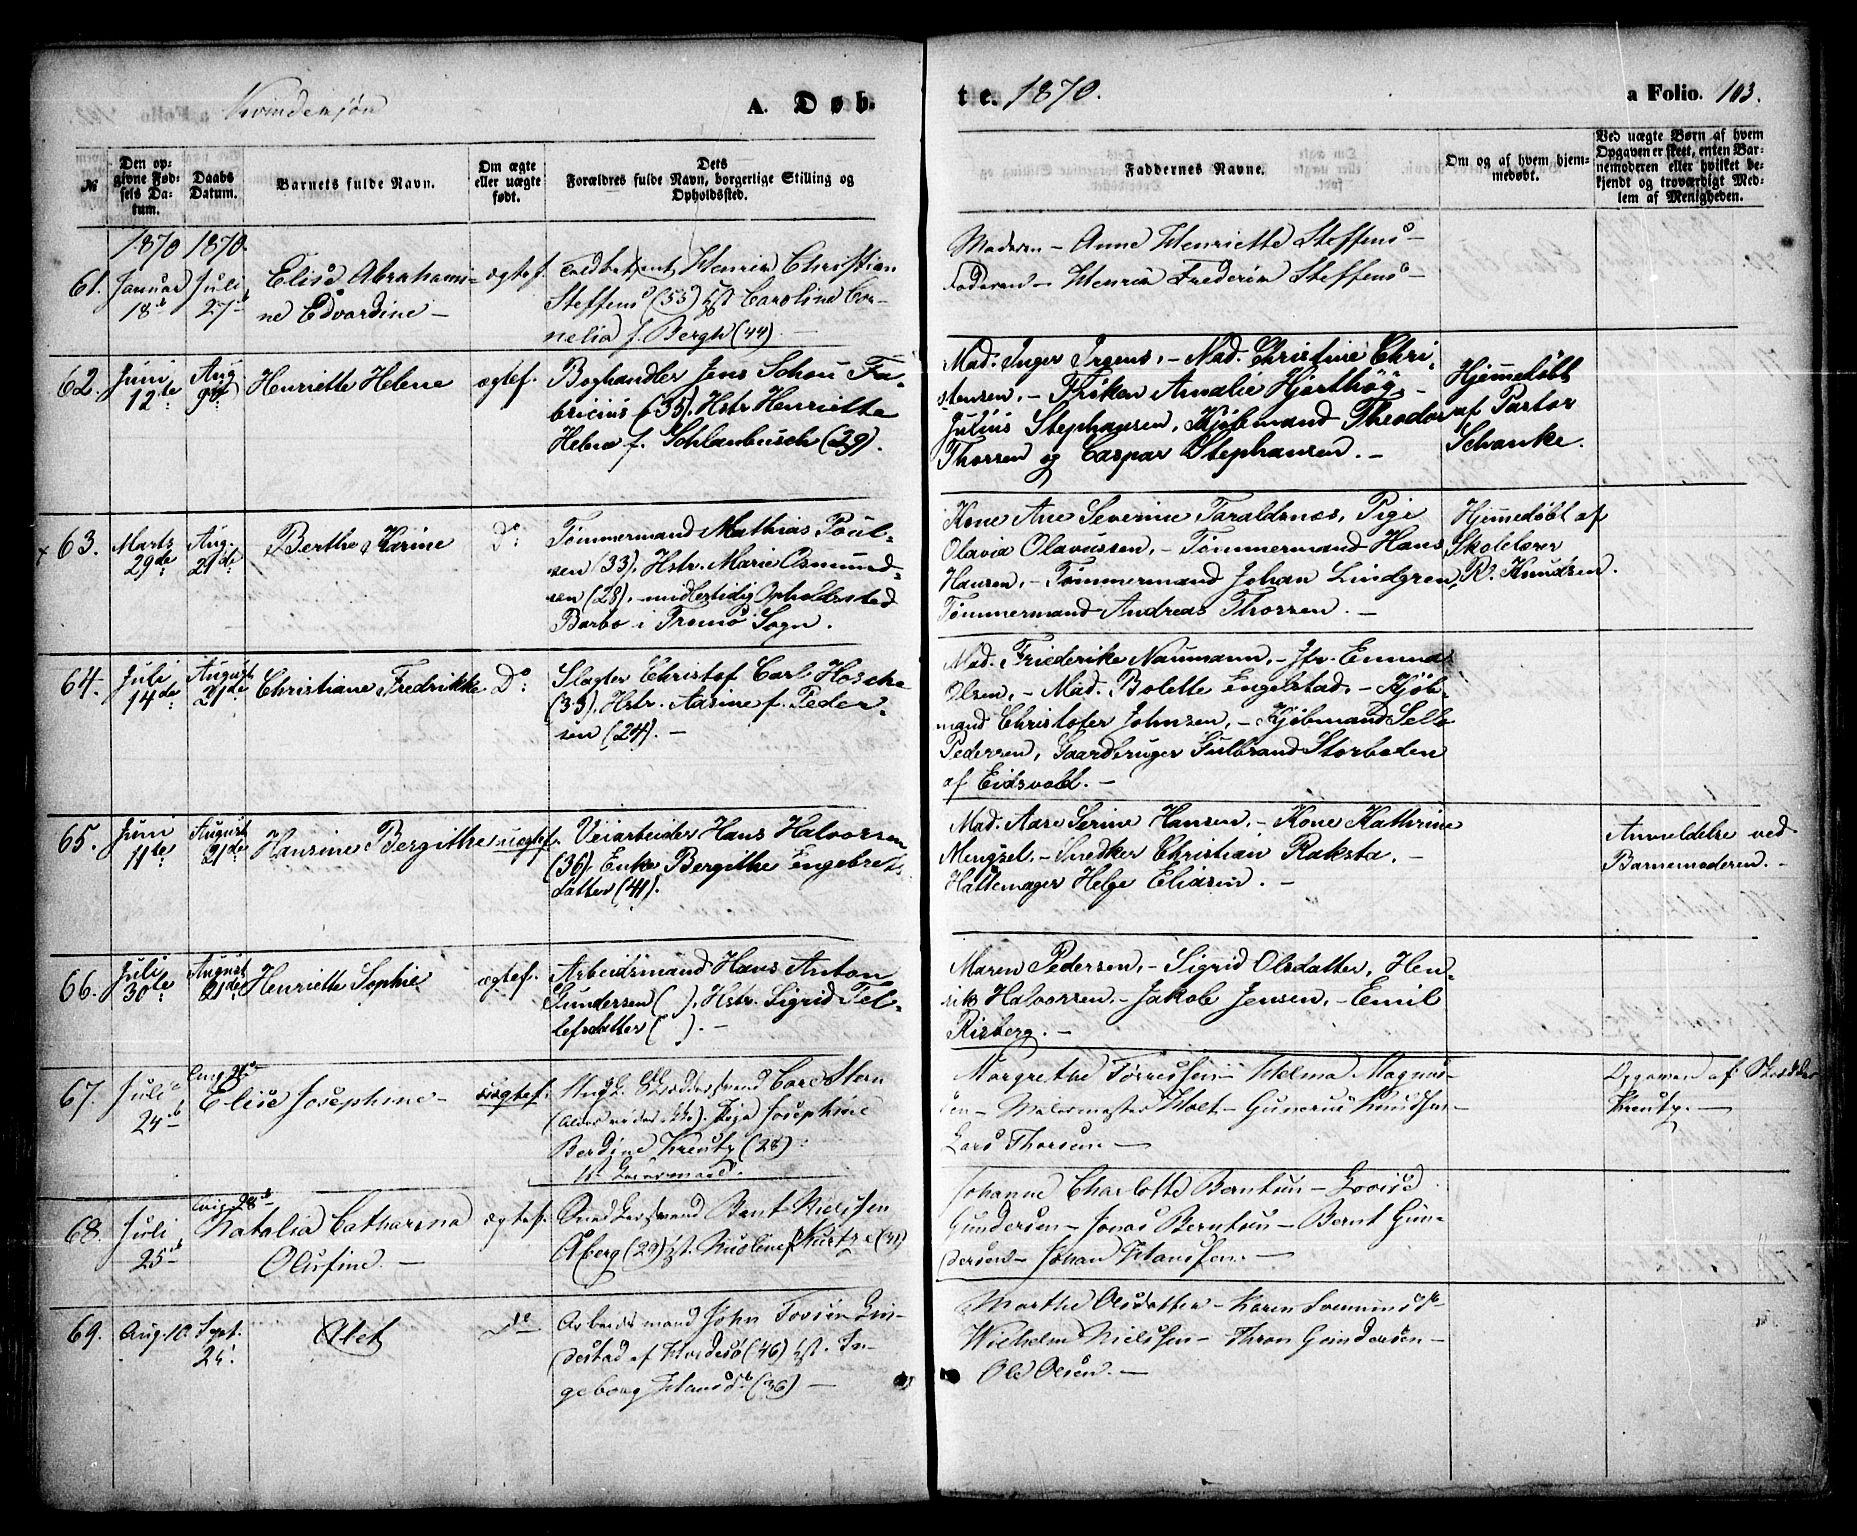 Kvindekjøn
A. Døb-
te. 1870.
a Folio. 103.
№
Den op-
givne Fød-
sels Da-
tum.
Daabs
Datum.
Barnets fulde Navn.
Om ægte
eller uægte
født.
Dets
Forældres fulde Navn, borgerlige Stilling og
Opholdssted.
Faddernes Navne.
Om og af hvem hjem-
medøbt.
Ved uægte Børn af hvem
Opgaven er skeet, enten Bar-
nemoderen eller hvilket be-
kjendt og troværdigt Med-
lem af Menigheden.
1870 1870.
61. Januar
18
Juli
27
Elise Abrahami-
ne Edvardine –
ægtef.
Henrik Christian
Steffens (53) Caroline Cor-
nelia f. Bergh (44) –
Moderen – Anne Henriette Steffens –
Faderen – Henrik Frederik Steffens –
62. Juni
12te
Aug.
9de
Henriette Helene
ægtef.
Boghandler Jens Schou Fa-
bricius (35). Hstr. Henriette
Helene f. Schlanbusch (29).
Mad. Inger Irgens, – Mad. Christine Chri-
stensen, – Frøken Amalie Hjorthøg –
Julius Stephansen, Kjøbmand Theodor
Thorsen og Caspar Stephansen. –
Hjemedøbt
af Pastor
Schanke.
x 63. Marts
29de
Aug.
21de
Berthe Karine
Do
Tømmermand Mathias Poul-
sen (33). Hstr. Marie Osmund-
sen (28), midlertidig Opholdssted
Barbo i Tromø Sogn.
Kone Ane Severine Taraldsnes, Pige
Olavia Olavussen, – Tømmermand Hans
Hansen, – Tømmermand Johan Lindgren,
Tømmermand Andreas Thorsen. –
Hjemedøbt af
Skolelærer
K. Knudsen.
64. Juli
14de
August
21de
Christiane Fredrikke
Do
Slagter Christof Carl Hosche
(33). Hstr. Aasine f. Peder-
sen (24). –
Mad. Friederike Naumann, – Jfr. Emma
Olsen, – Mad. Bolette Engelstad, – Kjøb-
mand Christofer Johnsen, – Kjøbmand
Pedersen, Gaardbruger Gulbrand Storboden
af Eidsvold. –
65. Juni
11te
August
21de
Hansine Bergithe
uægtef.
Veiarbeider Hans Halvorsen
(36). Enke Bergithe Engebrets-
datter (41).
Mad. Aase Serine Hansen, – Kone Kathrine
Mengsel, – Snedker Christian Raksta. –
Hattemager Helge Eliasen. –
Anmeldelse ved
Barnemoderen. –
66. Juli
30te
August
21de
Henriette Sophie
ægtef.
Arbeidsmand Hans Anton
Gundersen ( ). Hstr. Sigrid Tel-
lefsdatter ( ). –
Maren Pedersen, – Sigrid Olsdatter, Hen-
rik Halvorsen, – Jakob Jensen, – Emil
Risberg. –
67. Juli
24
Aug. 28
Elise Josephine –
uægtef.
Carl Stern
Pige Josephine
Berdine Kreutz (28).
Margrethe Tørressen – Helma Magnus-
sen – Malermester Holt – Gunerius Knudsen –
Lars Thorsen –
Opgaven af
Kreutz. –
68. Juli
25
Aug. 28
Natalia Catharina
Olufine. –
ægtef.
Bent Nielssen
Aberg (29)
Johanne Charlotte Berntsen – Lovise
Gundersen – Jonas Berntsen – Bernt Gun-
dersen – Johan Hanssen. –
69. Aug. 10. Sept.
25.
Alet
Do
Arbeidsmand John Tovsen Grn-
destad af Hisdesø (46) In-
geborg Hansd. (36) –
Marthe Olsdatter – Karen
Wilhelm Nielssen – Thron Gundersen –
Ole Olsen. –